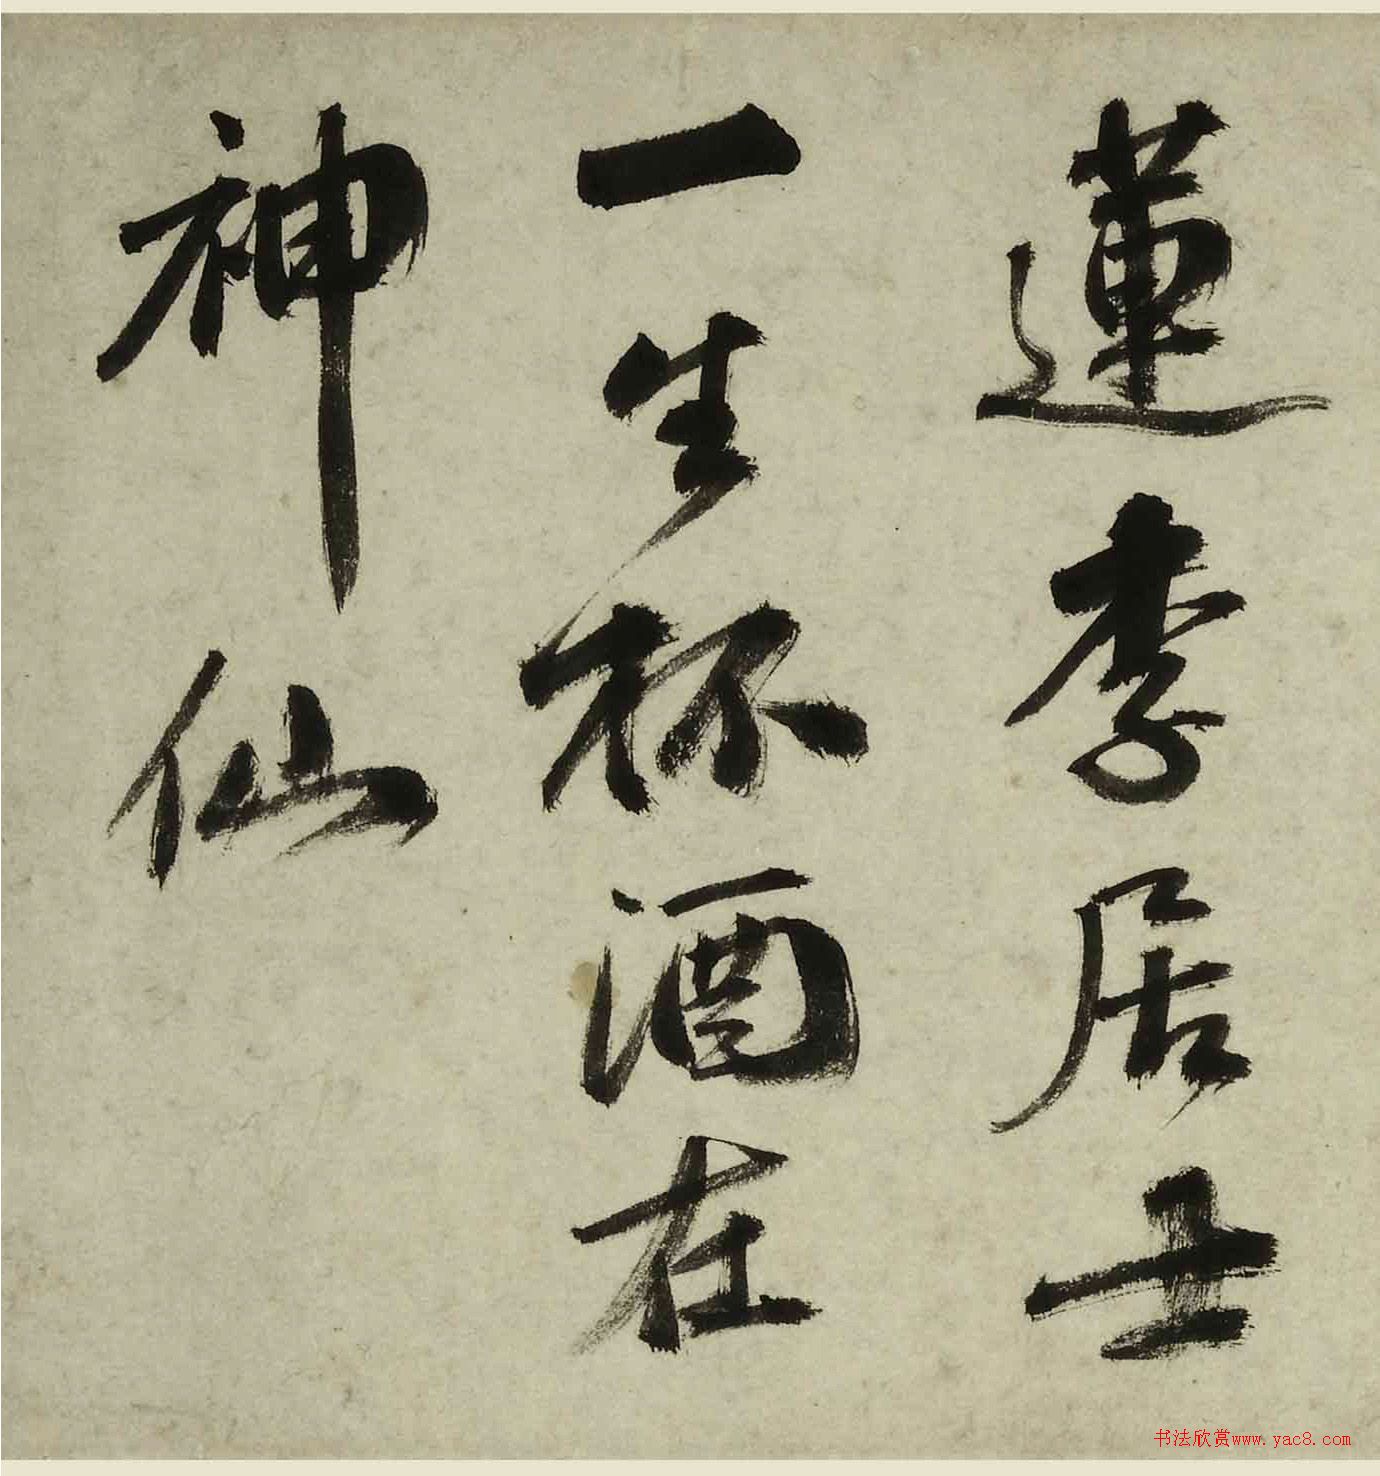 蓮李居士
一生杯酒在
神仙
书法欣赏www.yac8.com